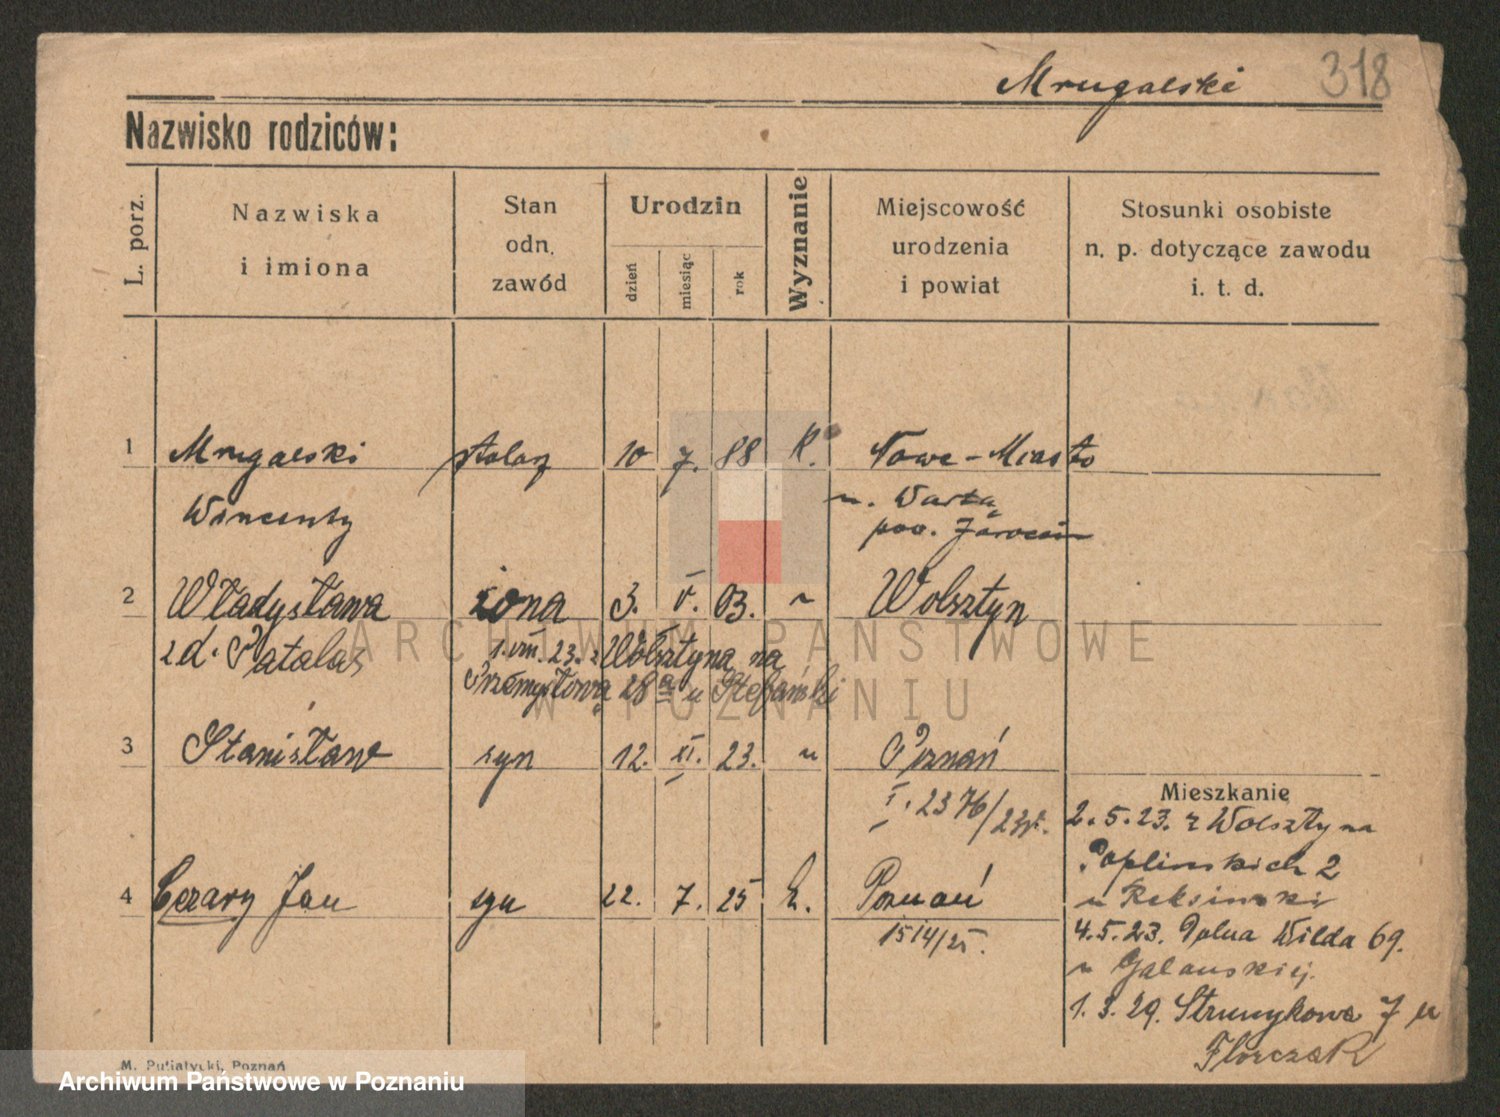 Mrugalski 318
Nazwisko rodziców:
L. porz.
Nazwiska
i imiona
Stan
odn.
zawód
Urodzin
dzień
miesiąc
rok
Wyznanie
Miejscowość
urodzenia
i powiat
Stosunki osobiste
n. p. dotyczące zawodu
i. t. d.
1 Mrugalski stolarz 10 7. 88 K. Nowe-Miasto
Wincenty n. Wartą
pow. Jarocin
2 Władysława żona 3. V. 03. " Wolsztyn
z d. Patalas 1. VIII. 23. z Wolsztyna na
Przemysłową 28a u Stefański
3 Stanisław syn 12. XI. 23. " Poznań
I. 2376/23
4 Cezary Jan syn 22. 7. 25 k. Poznań
1514/25.
Mieszkanie
2. 5. 23. z Wolsztyna
Poplinskich 2
u Reksinski
4. 5. 23. Dolna Wilda 69.
u Galanskiej.
1. 3. 29. Strumykowa 7 u
Florczak
M. Putiatycki, Poznań
ARCHIWUM PAŃSTWOWE
W POZNANIU
Archiwum Państwowe w Poznaniu